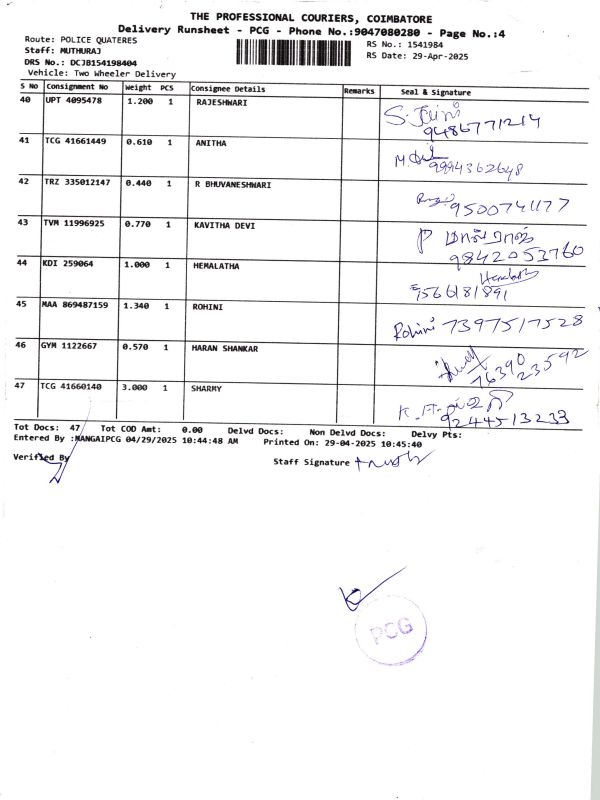 THE PROFESSIONAL COURIERS, COIMBATORE
Delivery Runsheet - PCG - Phone No.:9047080280 - Page No.:4
Route: POLICE QUATERES RS No.: 1541984
Staff: MUTHURAJ RS Date: 29-Apr-2025
DRS No.: DCJB154198404
Vehicle: Two Wheeler Delivery
S No Consignment No Weight PCS Consignee Details Remarks Seal & Signature
40 UPT 4095478 1.200 1 RAJESHWARI
9486771214
41 TCG 41661449 0.610 1 ANITHA
9994362648
42 TRZ 335012147 0.440 1 R BHUVANESHWARI
9500741177
43 TVM 11996925 0.770 1 KAVITHA DEVI
9842053760
44 KDI 259064 1.000 1 HEMALATHA
9566181891
45 MAA 869487159 1.340 1 ROHINI
Rohini 7397517528
46 GYM 1122667 0.570 1 HARAN SHANKAR
76390 23592
47 TCG 41660140 3.000 1 SHARMY
9244513233
Tot Docs: 47 Tot COD Amt: 0.00 Delvd Docs: Non Delvd Docs: Delvy Pts:
Entered By :MANGAIPCG 04/29/2025 10:44:48 AM Printed On: 29-04-2025 10:45:40
Verified By Staff Signature
PCG